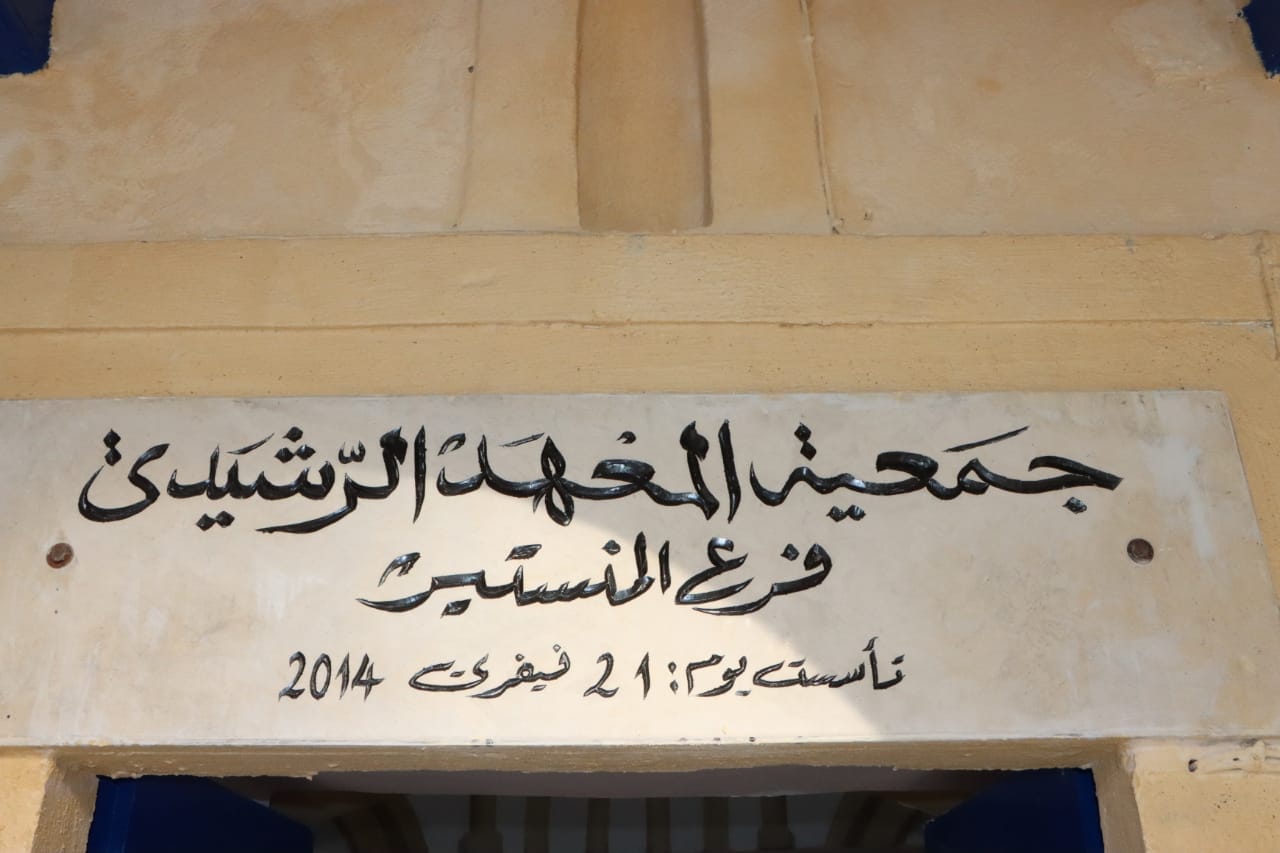 جمعية المعهد الرّشيدي
فرع المنستير
تأسست يوم: 21 فيفري 2014